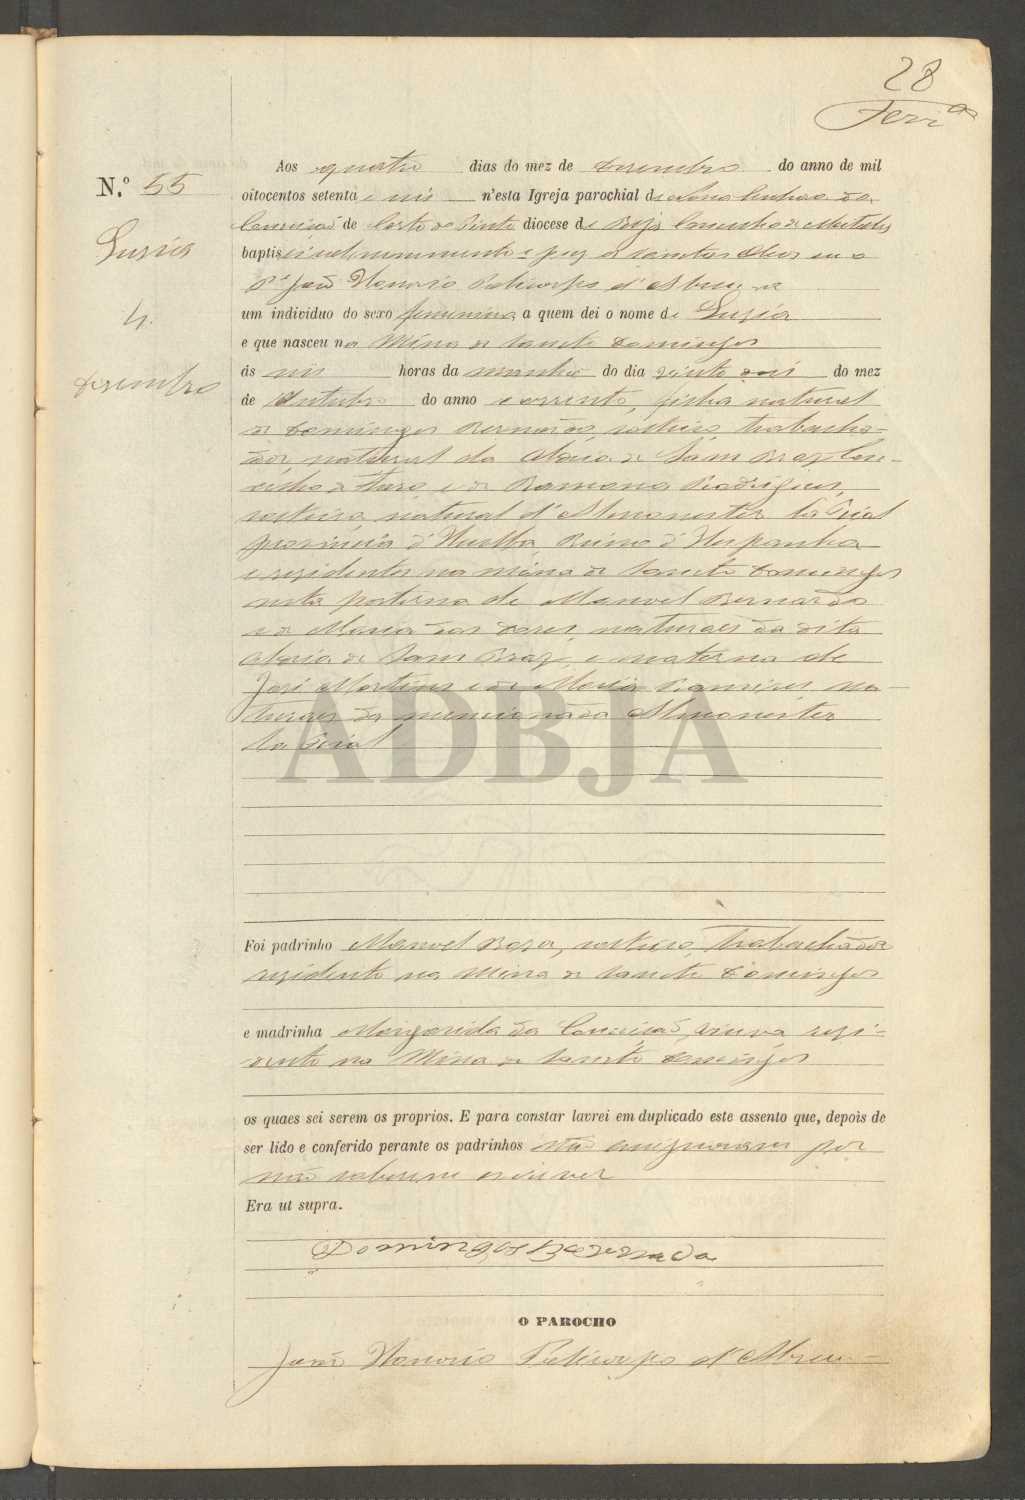 28
Ferr.ª
N.º 55
Luzia
4
Dezembro
Aos quatro dias do mez de Dezembro do anno de mil
oitocentos setenta e seis n'esta Igreja parochial de Nossa Senhora da
Conceição de Corte do Pinto diocese de Beja Concelho de Mertola
baptisei solemnemente e puz os Santos Oleos eu o
P.e João Honorio Policarpo d'Abreu
um individuo do sexo feminino, a quem dei o nome de Luzia
e que nasceu na Mina de Sancto Domingos
ás seis horas da manhã do dia vinte seis do mez
de Outubro do anno corrente, filha natural
de Domingos Bernardo, solteiro, trabalha-
dor, natural da Aldeia de Sam Braz Con-
celho de e de Ramona Rodrigues,
solteira, natural d'Almonaster la Rial
provincia d'Huelba, Reino d'Hespanha
e residentes na mina de Sancto Domingos
neta paterna de Manoel Bernardo
e de Maria das Dores, naturaes da dita
Aldeia de Sam Braz, e materna de
José Martins e de Maria Ramires na-
turaes da mencionada Almonaster
la Rial
ADBJA
Foi padrinho Manoel Roza, solteiro, trabalhador
residente na Mina de Sancto Domingos
e madrinha Margarida da Conceição, viuva resi-
dente na Mina de Sancto Domingos
os quaes sei serem os proprios. E para constar lavrei em duplicado este assento que, depois de
ser lido e conferido perante os padrinhos não assignaram por
não saberem escrever
Era ut supra.
Domingos Bernardo
O PAROCHO
João Honorio Policarpo d'Abreu